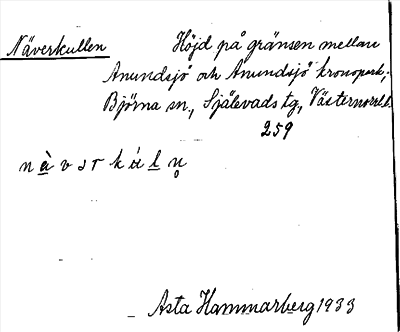 Näverkullen Höjd på gränsen mellan
Anundsjö och Anundsjö kronopark,
Björna sn, Själevads tg, Västernorrl. l.
259
Asta Hammarberg 1933